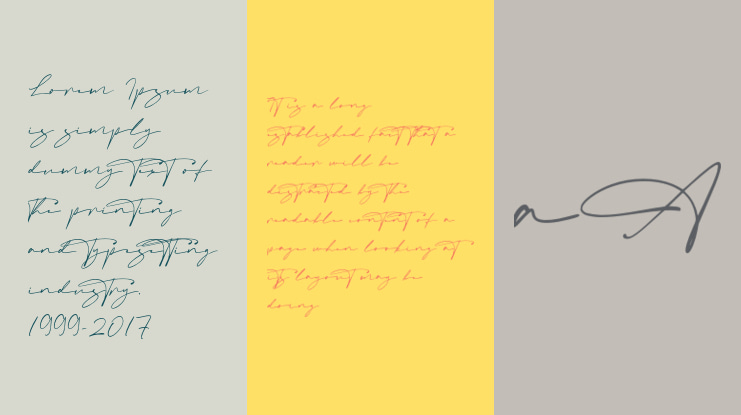 Lorem Ipsum
is simply
dummy text of
the printing
and typesetting
industry.
1999-2017
It is a long
established fact that a
reader will be
distracted by the
readable content of a
page when looking at
its layout may be
doeing
a A